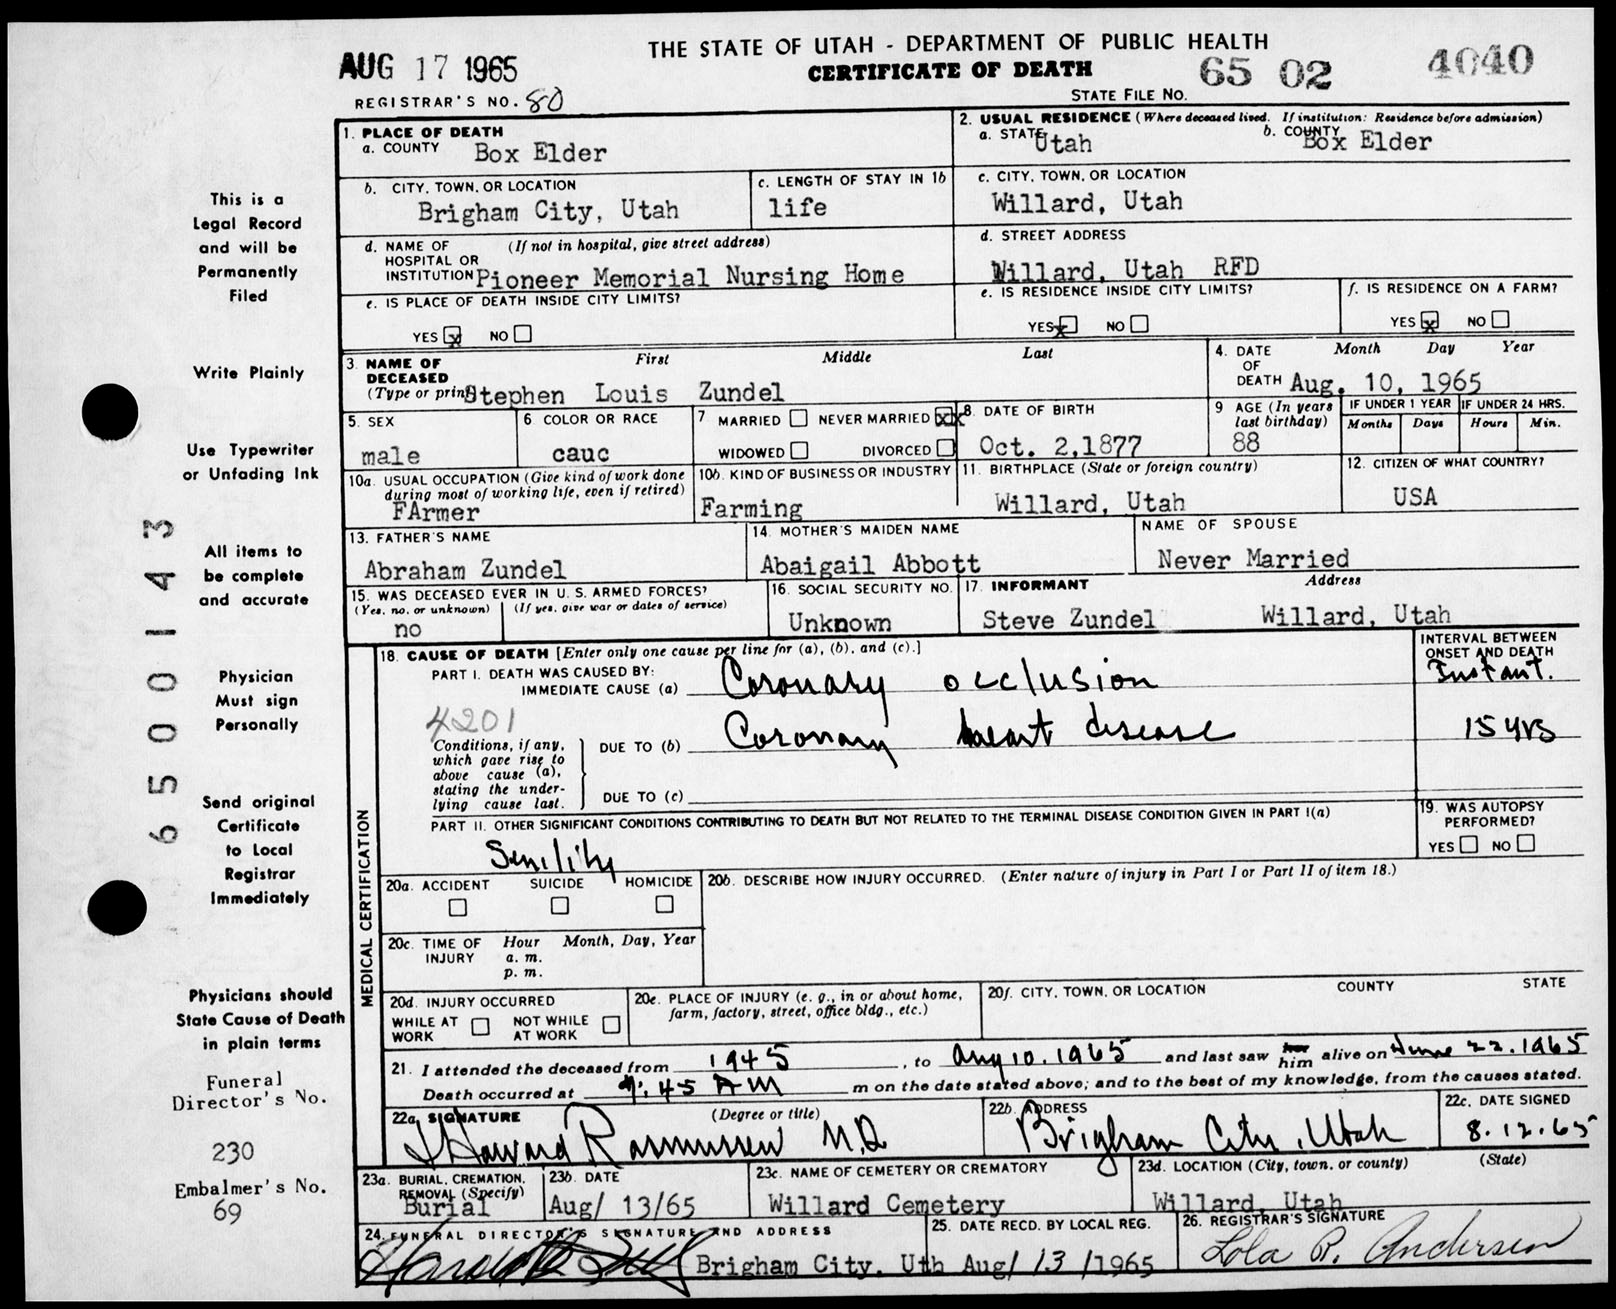 THE STATE OF UTAH - DEPARTMENT OF PUBLIC HEALTH
AUG 17 1965
CERTIFICATE OF DEATH
65 02 4040
REGISTRAR'S NO. 80
STATE FILE NO.
1. PLACE OF DEATH
a. COUNTY Box Elder
2. USUAL RESIDENCE (Where deceased lived. If institution: Residence before admission)
a. STATE Utah b. COUNTY Box Elder
b. CITY, TOWN, OR LOCATION
Brigham City, Utah
c. LENGTH OF STAY IN 1b
life
c. CITY, TOWN, OR LOCATION
Willard, Utah
d. NAME OF HOSPITAL OR INSTITUTION (If not in hospital, give street address)
Pioneer Memorial Nursing Home
d. STREET ADDRESS
Willard, Utah RFD
e. IS PLACE OF DEATH INSIDE CITY LIMITS?
YES x NO
e. IS RESIDENCE INSIDE CITY LIMITS?
YES x NO
f. IS RESIDENCE ON A FARM?
YES x NO
3. NAME OF DECEASED (Type or print)
First Middle Last
Stephen Louis Zundel
4. DATE OF DEATH
Month Day Year
Aug. 10, 1965
5. SEX
male
6 COLOR OR RACE
cauc
7 MARRIED NEVER MARRIED xx
WIDOWED DIVORCED
8. DATE OF BIRTH
Oct. 2,1877
9 AGE (In years last birthday)
88
IF UNDER 1 YEAR
Months Days
IF UNDER 24 HRS.
Hours Min.
10a. USUAL OCCUPATION (Give kind of work done during most of working life, even if retired)
FArmer
10b. KIND OF BUSINESS OR INDUSTRY
Farming
11. BIRTHPLACE (State or foreign country)
Willard, Utah
12. CITIZEN OF WHAT COUNTRY?
USA
13. FATHER'S NAME
Abraham Zundel
14. MOTHER'S MAIDEN NAME
Abaigail Abbott
NAME OF SPOUSE
Never Married
15. WAS DECEASED EVER IN U. S. ARMED FORCES?
(Yes, no, or unknown) (If yes, give war or dates of service)
no
16. SOCIAL SECURITY NO.
Unknown
17. INFORMANT Address
Steve Zundel Willard, Utah
18. CAUSE OF DEATH [Enter only one cause per line for (a), (b), and (c).]
INTERVAL BETWEEN ONSET AND DEATH
PART I. DEATH WAS CAUSED BY:
IMMEDIATE CAUSE (a) Coronary occlusion Instant.
4201
Conditions, if any, which gave rise to above cause (a), stating the underlying cause last.
DUE TO (b) Coronary heart disease 15 yrs
DUE TO (c)
PART II. OTHER SIGNIFICANT CONDITIONS CONTRIBUTING TO DEATH BUT NOT RELATED TO THE TERMINAL DISEASE CONDITION GIVEN IN PART I(a)
Senility
19. WAS AUTOPSY PERFORMED?
YES NO
20a. ACCIDENT SUICIDE HOMICIDE
20b. DESCRIBE HOW INJURY OCCURRED. (Enter nature of injury in Part I or Part II of item 18.)
20c. TIME OF INJURY
Hour Month, Day, Year
a. m.
p. m.
20d. INJURY OCCURRED
WHILE AT WORK NOT WHILE AT WORK
20e. PLACE OF INJURY (e. g., in or about home, farm, factory, street, office bldg., etc.)
20f. CITY, TOWN, OR LOCATION COUNTY STATE
MEDICAL CERTIFICATION
21. I attended the deceased from 1945, to Aug 10. 1965 and last saw her him alive on June 22. 1965
Death occurred at 9:45 AM m on the date stated above; and to the best of my knowledge, from the causes stated.
22a. SIGNATURE (Degree or title)
J Howard Rasmussen M.D
22b. ADDRESS
Brigham City, Utah
22c. DATE SIGNED
8.12.65
23a. BURIAL, CREMATION, REMOVAL (Specify)
Burial
23b. DATE
Aug/ 13/65
23c. NAME OF CEMETERY OR CREMATORY
Willard Cemetery
23d. LOCATION (City, town, or county) (State)
Willard, Utah
24. FUNERAL DIRECTOR'S SIGNATURE AND ADDRESS
Brigham City, Uth
25. DATE RECD. BY LOCAL REG.
Aug/ 13 /1965
26. REGISTRAR'S SIGNATURE
Lola R. Andersen
This is a
Legal Record
and will be
Permanently
Filed
Write Plainly
Use Typewriter
or Unfading Ink
All items to
be complete
and accurate
Physician
Must sign
Personally
Send original
Certificate
to Local
Registrar
Immediately
Physicians should
State Cause of Death
in plain terms
Funeral
Director's No.
230
Embalmer's No.
69
6500143